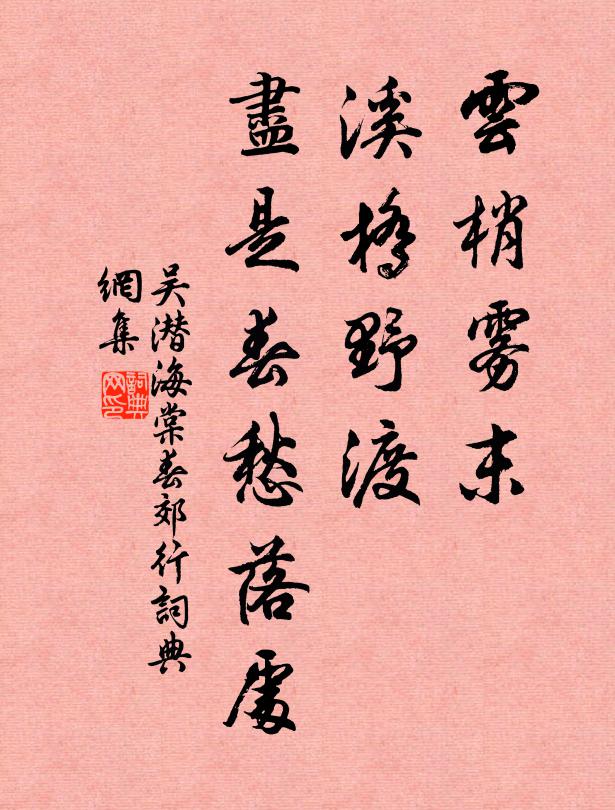 雲梢雾末
溪橋野渡
盡是春愁落處
吴潜海棠春郊行詞典
網集
詞典
网印